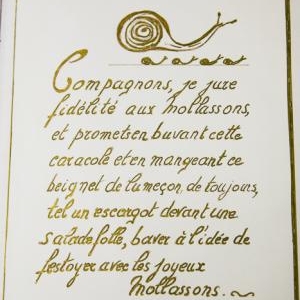 Compagnons, je jure
fidélité aux Mollassons,
et promets en buvant cette
caracole et en mangeant ce
beignet de lumeçon de toujours,
tel un escargot devant une
salade folle, baver à l'idée de
festoyer avec les joyeux
Mollassons.